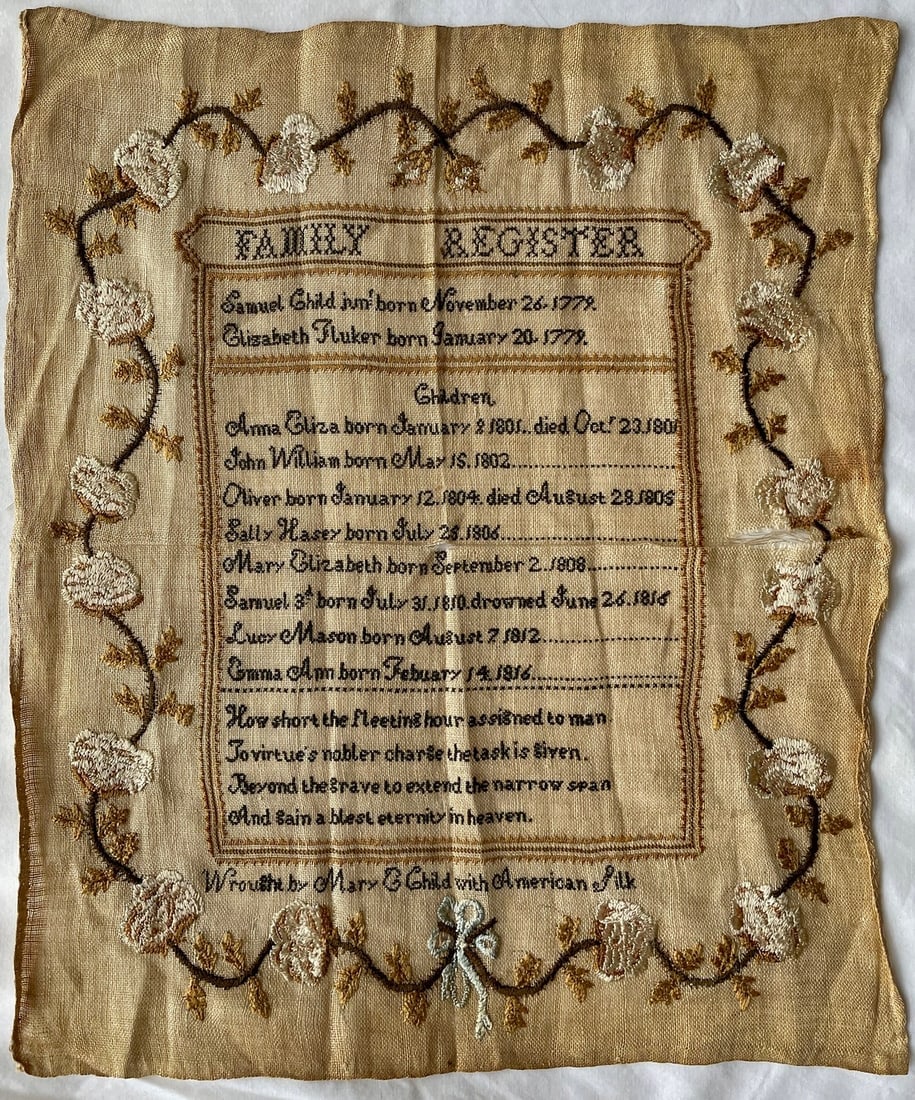 FAMILY REGISTER
Samuel Child junr born November 26. 1779.
Elizabeth Fluker born January 20. 1779.
Children
Anna Eliza born January 2 1801.. died Octr 23.1801
John William born May 15. 1802
Oliver born January 12. 1804. died August 28. 1805
Sally Hasey born July 25. 1806
Mary Elizabeth born September 2. 1808
Samuel 3d born July 31. 1810. drowned June 26. 1816
Lucy Mason born August 7. 1812
Emma Ann born Febuary 14. 1816
How short the fleeting hour assigned to man
To virtue's nobler charge the task is given.
Beyond the grave to extend the narrow span
And gain a blest eternity in heaven.
Wrought by Mary E Child with American Silk